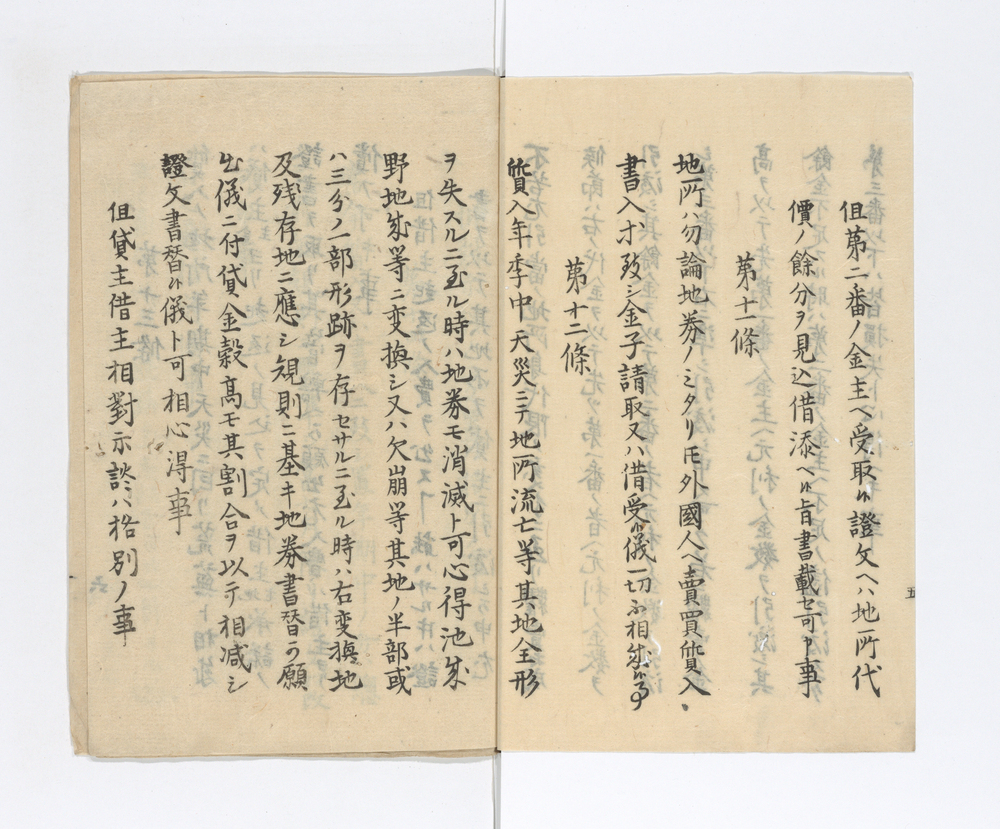 但第二番ノ金主ヘ受取候證文ヘハ地所代
價ノ餘分ヲ見込借添ヘ候旨書載セ可申事
第十一條
地所ハ勿論地券ノミタリトモ外國人ヘ賣買質入
書入ホ致シ金子請取又ハ借受候儀一切不相成候事
第十二條
質入年季中天災ニテ地所流亡等其地全形
ヲ失スルニ至ル時ハ地券モ消滅ト可心得池成
野地成等ニ変換シ又ハ欠崩等其地ノ半部或
ハ三分ノ一部形跡ヲ存セサルニ至ル時ハ右変換地
及残存地ニ應シ規則ニ基キ地券書替可願
出儀ニ付貸金穀高モ其割合ヲ以テ相減シ
證文書替候儀ト可相心得事
但貸主借主相對示談ハ格別ノ事
五